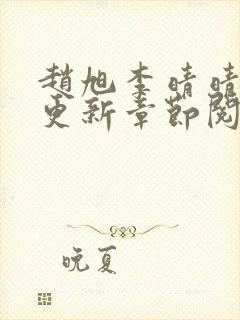 趙旭李晴晴
更新章節閱
晚夏